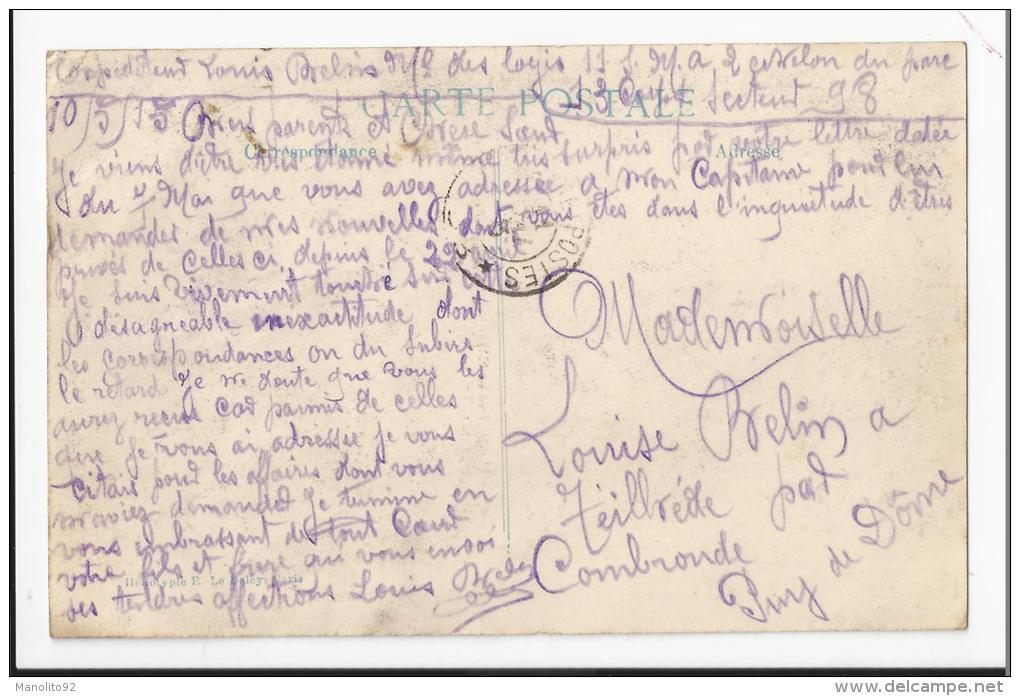 Expéditeur Louis Belin Mal des logis 11 S. M. A 2 echelon du parc
13 Corps Secteur 98
CARTE POSTALE
10/5/15 Chers parents et Chere Sœur
Correspondance
Adresse
Je viens d'être tres etonné même tris surpris par votre lettre datée
du 4 Mai que vous avez adressée a mon Capitaine pour lui
demander de mes nouvelles dont vous êtes dans l'inquietude d'êtres
privés de celles ci depuis le 22 avril
Je suis vivement tourné sur cet
désagréable inexactitude dont
les correspondances on du subirs
le retard Je me doute que vous les
aurez recue car parmis de celles
que je vous ai adressée je vous
citais pour les affaires dont vous
m'aviez demandez Je termine en
vous embrassant de tout Cœur
votre fils et frere qui vous envoi
ses tendres affections Louis Belin
POSTES
Mademoiselle
Louise Belin a
Teilhède par
Combronde
Puy de Dôme
Héliotypie E. Le Deley, Paris
Manolito92
www.delcampe.net